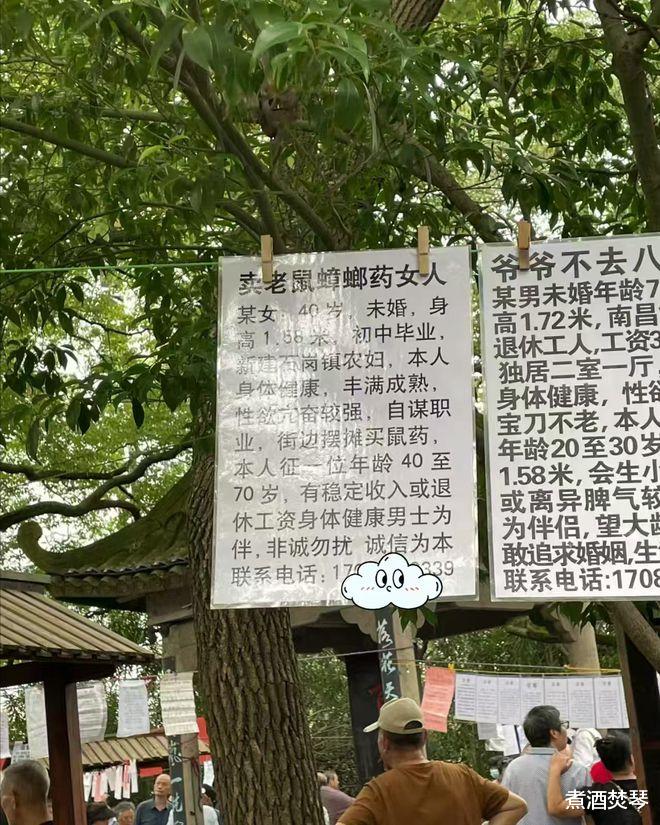 卖老鼠蟑螂药女人
某女：40岁，未婚，身
高1.58米，初中毕业，
新建石岗镇农妇，本人
身体健康，丰满成熟，
性欲亢奋较强，自谋职
业，街边摆摊买鼠药，
本人征一位年龄40至
70岁，有稳定收入或退
休工资身体健康男士为
伴，非诚勿扰 诚信为本
联系电话：17 339
爷爷不去八
某男未婚年龄7
高1.72米，南昌
退休工人，工资3
独居二室一厅，
身体健康，性欲
宝刀不老，本人
年龄20至30岁
1.58米，会生小
或离异脾气较
为伴侣，望大龄
敢追求婚姻，生
联系电话:1708
煮酒焚琴